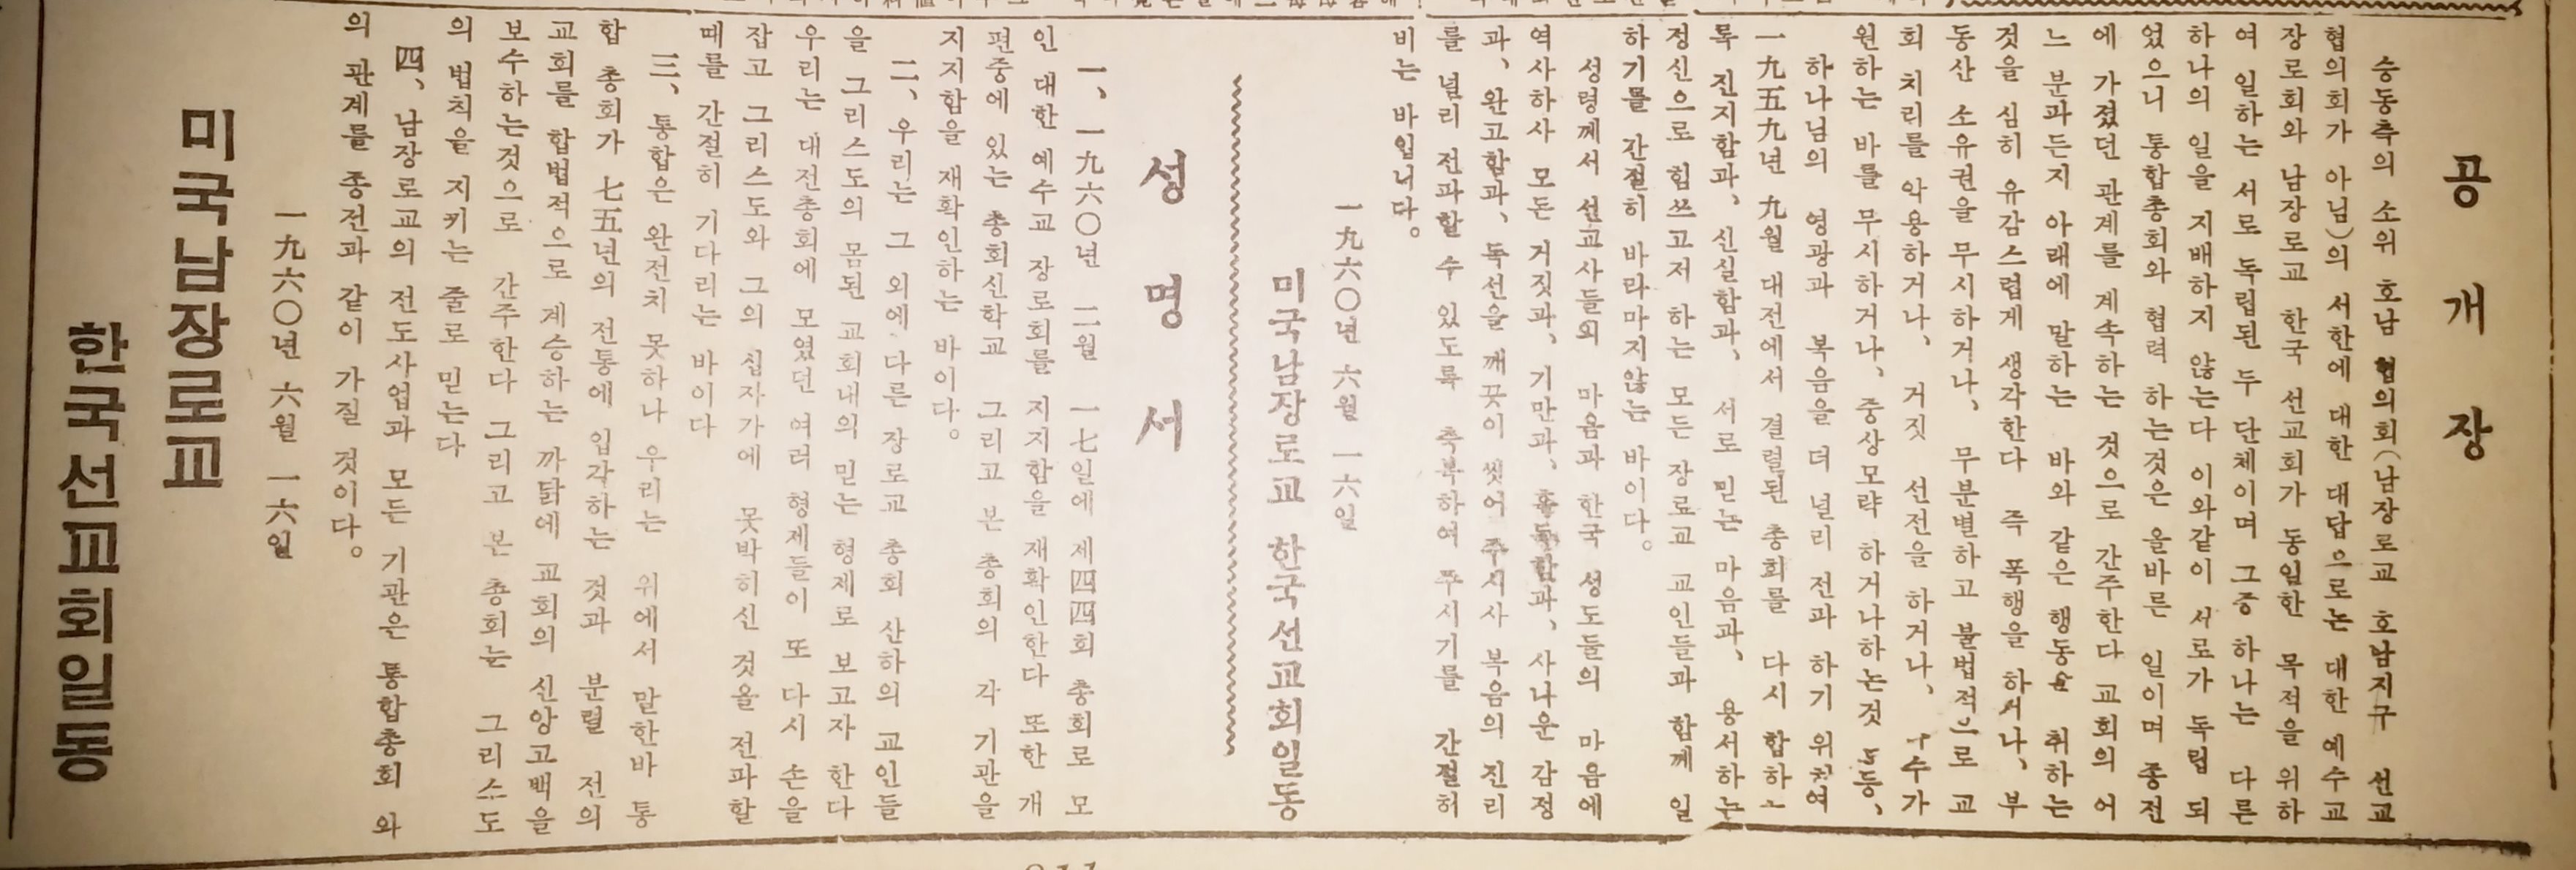 공개장
승동측의 소위 호남 협의회(남장로교 호남지구 선교
협의회가 아님)의 서한에 대한 대답으로는 대한 예수교
장로회와 남장로교 한국 선교회가 동일한 목적을 위하
여 일하는 서로 독립된 두 단체이며 그중 하나는 다른
하나의 일을 지배하지 않는다 이와같이 서로가 독립 되
었으니 통합총회와 협력 하는것은 올바른 일이며 종전
에 가졌던 관계를 계속하는 것으로 간주한다 교회의 어
느 분파든지 아래에 말하는 바와 같은 행동을 취하는
것을 심히 유감스럽게 생각한다 즉 폭행을 하거나, 부
동산 소유권을 무시하거나, 무분별하고 불법적으로 교
회 치리를 악용하거나, 거짓 선전을 하거나, 수가
원하는 바를 무시하거나, 중상모략 하거나하는것 등,
하나님의 영광과 복음을 더 널리 전파 하기 위하여
一九五九년 九월 대전에서 결렬된 총회를 다시 합하
록 진지함과, 신실함과, 서로 믿는 마음과, 용서하는
정신으로 힘쓰고저 하는 모든 장로교 교인들과 함께 일
하기를 간절히 바라마지않는 바이다。
성령께서 선교사들의 마음과 한국 성도들의 마음에
역사하사 모든 거짓과, 기만과, 과, 사나운 감정
과, 완고함과, 독선을 깨끗이 씻어 주시사 복음의 진리
를 널리 전파할 수 있도록 축복하여 주시기를 간절히
비는 바입니다。
一九六〇년 六월 一六일
미국남장로교 한국선교회일동
성명서
一、一九六〇년 二월 一七일에 제四四회 총회로 모
인 대한 예수교 장로회를 지지함을 재확인한다 또한 개
편중에 있는 총회신학교 그리고 본 총회의 각 기관을
지지함을 재확인하는 바이다。
二、우리는 그 외에 다른 장로교 총회 산하의 교인들
을 그리스도의 몸된 교회내의 믿는 형제로 보고자 한다
우리는 대전총회에 모였던 여러 형제들이 또 다시 손을
잡고 그리스도와 그의 십자가에 못박히신 것을 전파할
때를 간절히 기다리는 바이다
三、통합은 완전치 못하나 우리는 위에서 말한바 통
합 총회가 七五년의 전통에 입각하는 것과 분렬 전의
교회를 합법적으로 계승하는 까닭에 교회의 신앙고백을
보수하는것으로 간주한다 그리고 본 총회는 그리스도
의 법칙을 지키는 줄로 믿는다
四、남장로교의 전도사업과 모든 기관은 통합총회 와
의 관계를 종전과 같이 가질 것이다。
一九六〇년 六월 一六일
미국남장로교
한국선교회일동